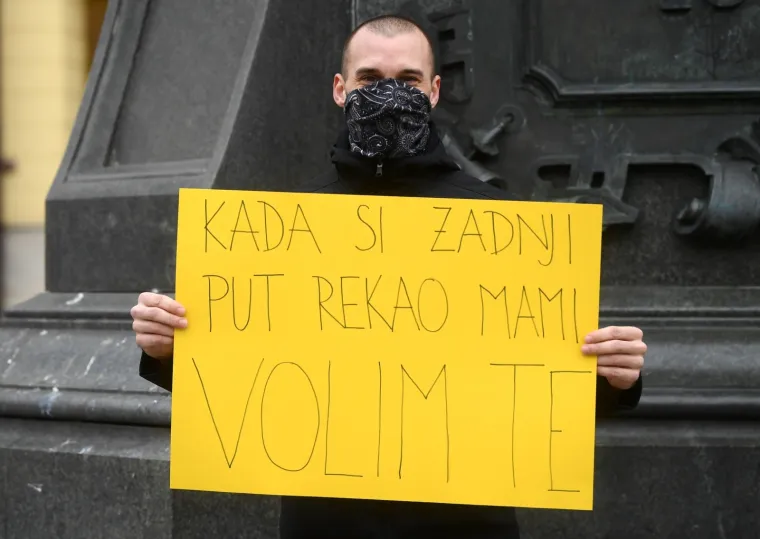 KADA SI ZADNJI
PUT REKAO MAMI
VOLIM TE